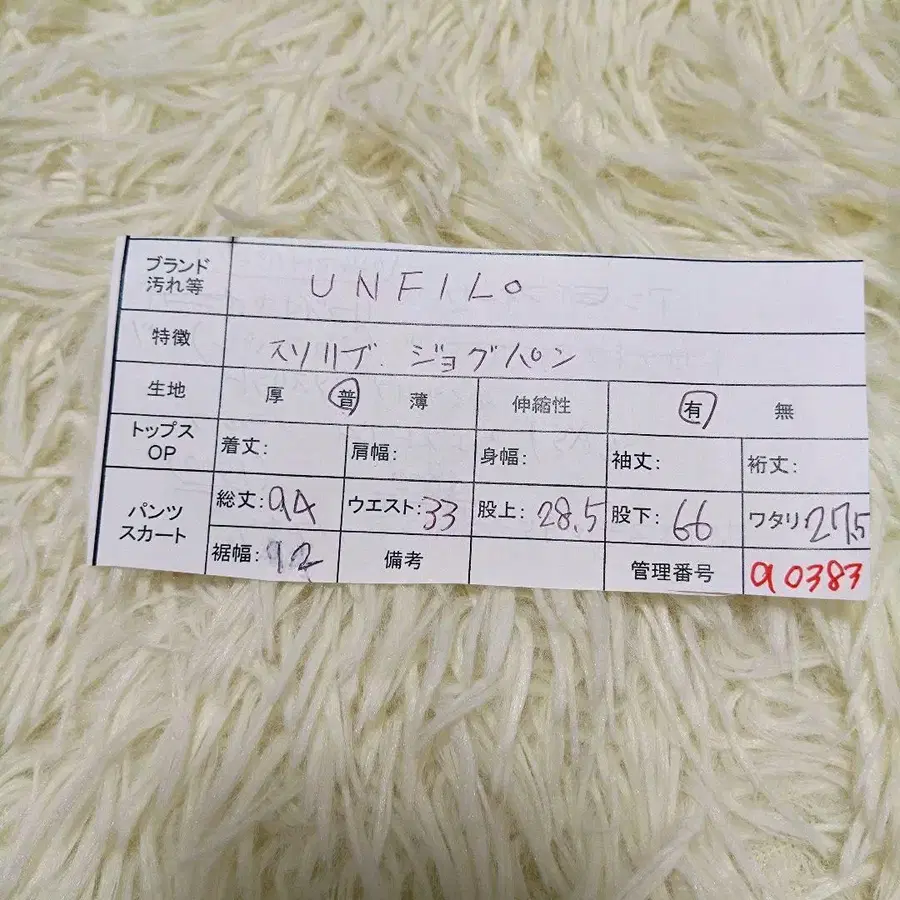 ブランド
汚れ等
UNFILO
特徴
スソリブ. ジョグパン
生地 厚 普 薄 伸縮性 有 無
トップス
OP
着丈: 肩幅: 身幅: 袖丈: 裄丈:
パンツ
スカート
総丈:94 ウエスト:33 股上:28.5 股下:66 ワタリ:27.5
裾幅:12 備考 管理番号 a0383